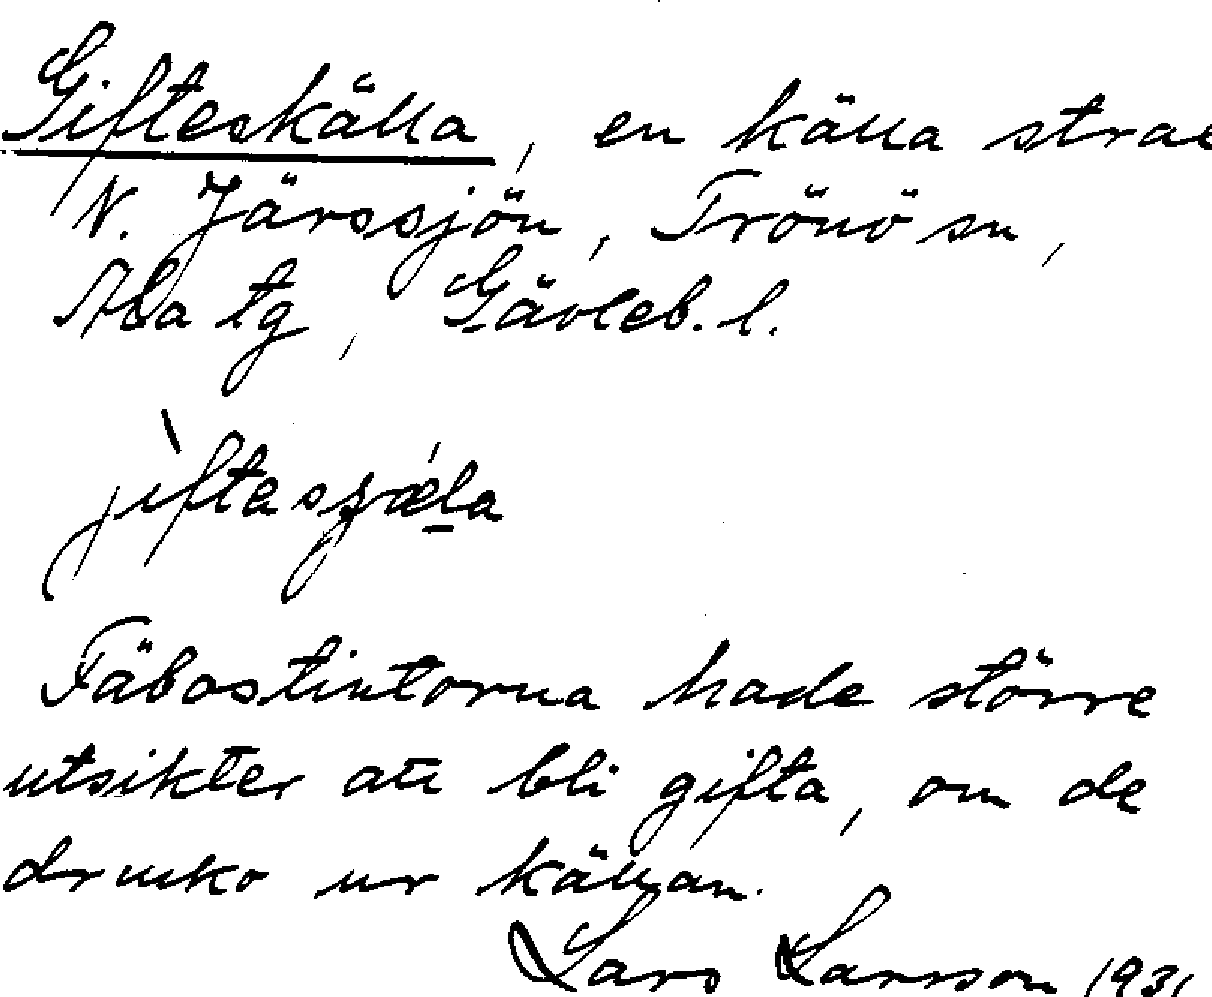 Gifteskälla, en källa strax
N. Järssjön, Trönö sn,
Ala tg, Gävleb. l.
jiftesȿæla
Täbostintorna hade större
utsikter att bli gifta, om de
drucko ur källan.
Lars Larsson 1931